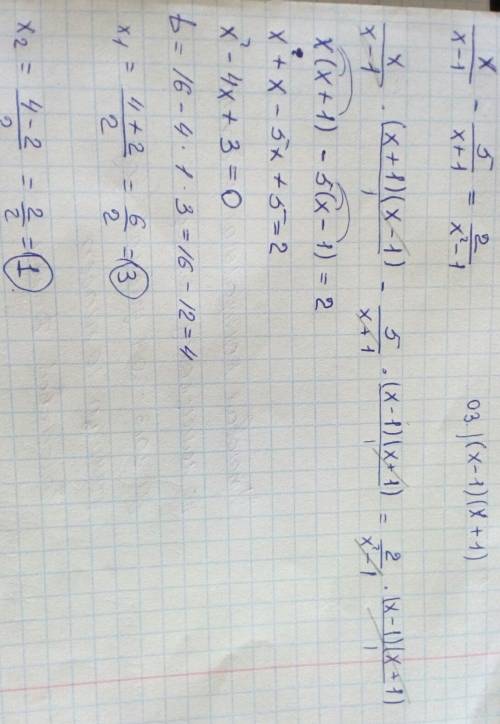 x/(x-1) - 5/(x+1) = 2/(x²-1)   03 | (x-1)(x+1)
x/(x-1) · (x+1)(x-1)/1 - 5/(x+1) · (x-1)(x+1)/1 = 2/(x²-1) · (x-1)(x+1)/1
x(x+1) - 5(x-1) = 2
x + x - 5x + 5 = 2
x² - 4x + 3 = 0
D = 16 - 4 · 1 · 3 = 16 - 12 = 4
x₁ = (4+2)/2 = 6/2 = 3
x₂ = (4-2)/2 = 2/2 = 1